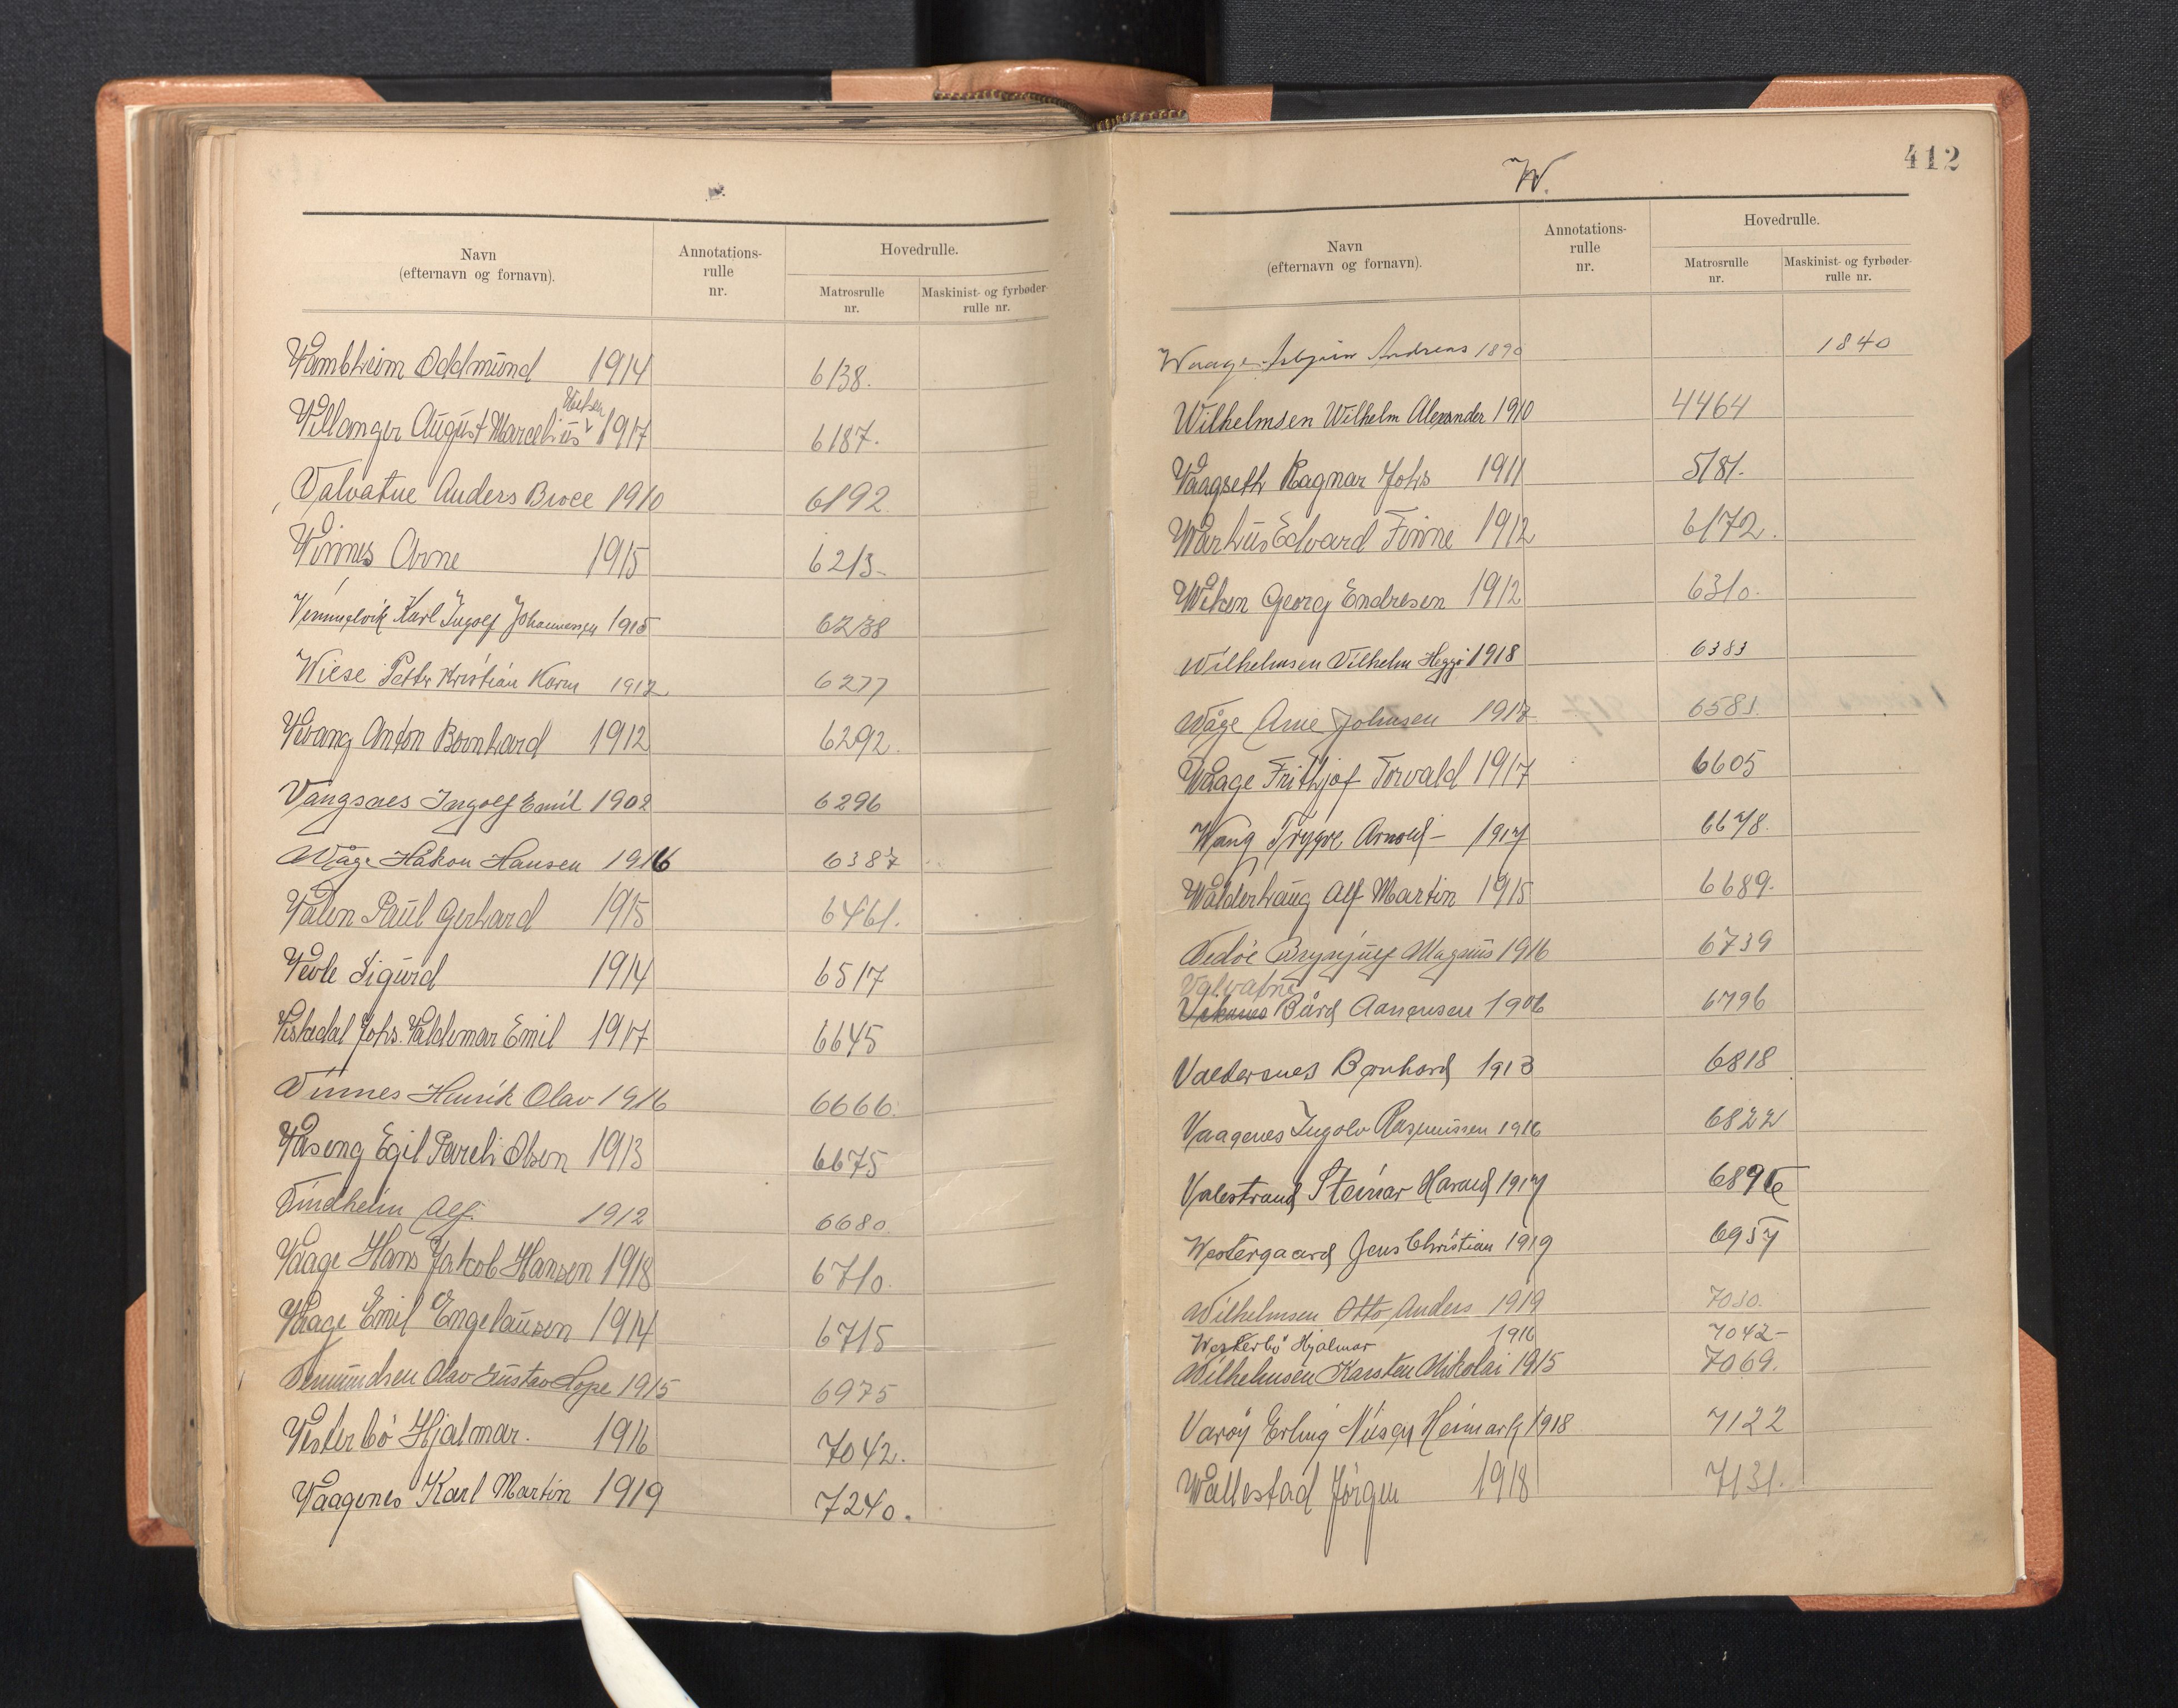 Navn
(efternavn og fornavn).
Annotations-
rulle
nr.
Hovedrulle.
Matrosrulle
nr.
Maskinist- og fyrbøder-
rulle nr.
Vambheim Oddmund 1914 6138.
Villanger August Marcelius 1917 6187.
Valvatne Anders Broce 1910 6192
Vinnes Arne 1915 6213-
Vemmelvik Karl Ingolf Johannessen 1915 6238
Wiese Petter Kristian Korm 1912 6277
Vevang Anton Bernhard 1912 6292.
Vangsnes Ingolf Emil 1902 6296
Våge Håkon Hansen 1916 6387
Valen Paul Gerhard 1915 6461.
Vevle Sigurd 1914 6517
Vestadal Johs. Valdemar Emil 1917 6645
Vinnes Henrik Olav 1916 6666
Våseng Egil Pareli Olsen 1913 6675
Vindheim Alf 1912 6680
Vaage Hans Jakob Hansen 1918 6710.
Vaage Emil Engelausen 1914 6715
Vemundsen Olav Gustav Lope 1915 6975
Vesterbö Hjalmar. 1916 7042.
Vaagenes Karl Martin 1919 7240.
412
W.
Navn
(efternavn og fornavn).
Annotations-
rulle
nr.
Hovedrulle.
Matrosrulle
nr.
Maskinist- og fyrbøder-
rulle nr.
Waage Asbjørn Andreas 1890 1840
Wilhelmsen Wilhelm Alexander 1910 4464
Vaagseth Ragnar Johs 1911 5181.
Warhus Edvard Finne 1912 6172.
Wiken Georg Endresen 1912 6310.
Wilhelmsen Vilhelm Heggø 1918 6383
Våge Arne Johnsen 1917 6581
Waage Frithjof Torvald 1917 6605
Wang Trygve Arnold - 1917 6678.
Walderhaug Alf Martin 1915 6689.
Vedöe Brynjulf Magnus 1916 6739
Valvatne
Viknes Bård Aanensen 1906 6796
Valdersnes Bernhard 1913 6818
Vaagenes Ingolv Rasmussen 1916 6822
Valestrand Steinar Harald 1917 6896
Westergaard Jens Christian 1919 6957
Wilhelmsen Otto Anders 1919 7030.
Westerbö Hjalmar 1916 7042-
Wilhelmsen Karsten Nikolai 1915 7069.
Varöy Erling Nilsen Heimark 1918 7122
Wallestad Jörgen 1918 7131.